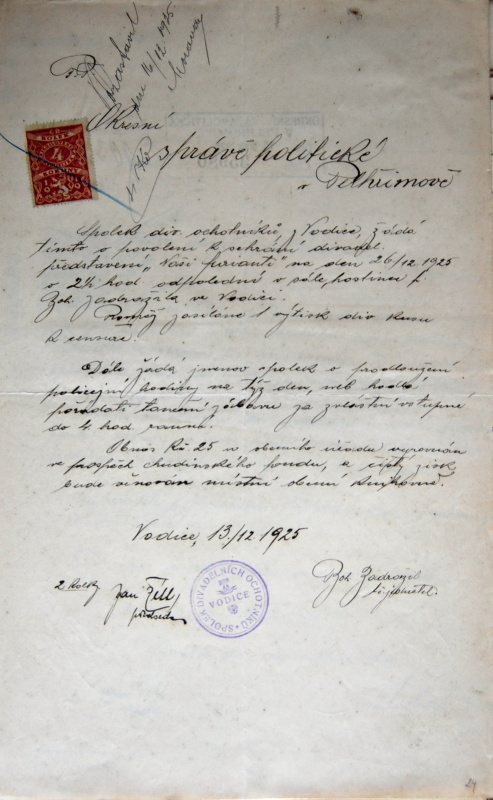 dne 16/12 1925
P. T.
Okresní
správě politické
v Pelhřimově
KOLEK
4
KORUNY
Spolek div. ochotníků z Vodice, žádá
tímto o povolení k sehrání divadel.
představení „Naši furianti" na den 26/12 1925
v 2½ hod odpolední v sále hostinci p.
Boh. Zadražila ve Vodici.
Rovněž zasíláme 1 výtisk div. kusu
k censuře.
Dále žádá jmenov. spolek o prodloužení
policejní hodiny na týž den, neb hodlá
pořádati taneční zábavu za zvláštní vstupné
do 4. hod. ranní.
Obnos Kč 25 u obecního úřadu vyrovnán
ve prospěch chudinského fondu, a čistý zisk
bude věnován místní obecní knihovně.
Vodice, 13./12 1925
2 kolky
Jan
předseda
SPOLEK DIVADELNÍCH OCHOTNÍKŮ
VODICE
Boh. Zadražil
jednatel.
24